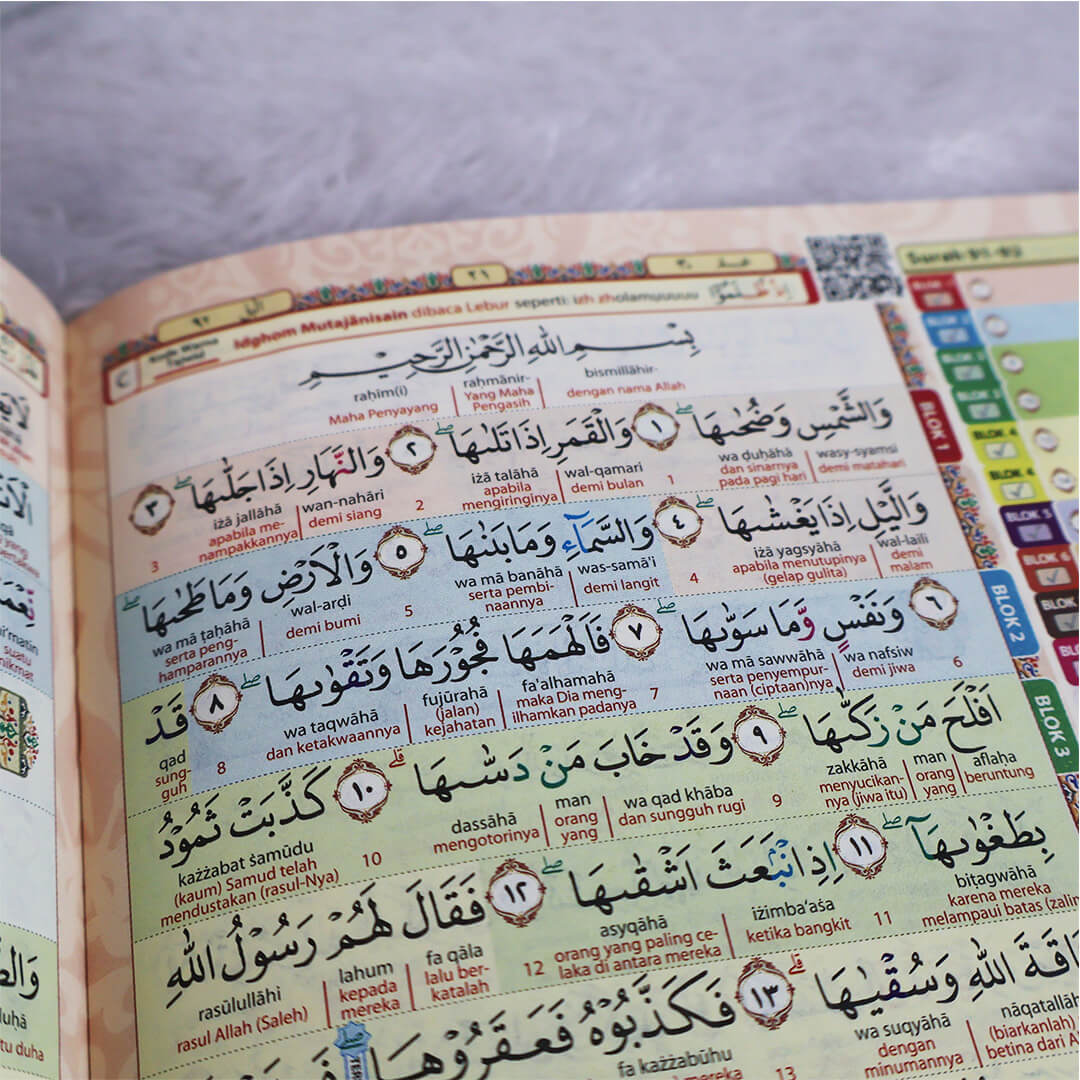 Idghom Mutajānisain dibaca Lebur seperti: izh zholamuuuuu اِذْ ظَّلَمُوْٓا
بِسْمِ اللّٰهِ الرَّحْمٰنِ الرَّحِيْمِ
bismillāhir- raḥmānir- raḥīm(i)
dengan nama Allah Yang Maha Pengasih Maha Penyayang
وَالشَّمْسِ وَضُحٰىهَا ۖ ١ وَالْقَمَرِ اِذَا تَلٰىهَا ۖ ٢ وَالنَّهَارِ اِذَا جَلّٰىهَا ۖ ٣
wasy-syamsi wa ḍuḥāhā 1 wal-qamari iżā talāhā 2 wan-nahāri iżā jallāhā 3
demi matahari dan sinarnya pada pagi hari demi bulan apabila mengiringinya demi siang apabila me-nampakkannya
وَالَّيْلِ اِذَا يَغْشٰىهَا ۖ ٤ وَالسَّمَاۤءِ وَمَا بَنٰىهَا ۖ ٥ وَالْاَرْضِ وَمَا طَحٰىهَا ۖ
wal-laili iżā yagsyāhā 4 was-samā'i wa mā banāhā 5 wal-arḍi wa mā ṭaḥāhā
demi malam apabila menutupinya (gelap gulita) demi langit serta pembi-naannya demi bumi serta peng-hamparannya
٦ وَنَفْسٍ وَّمَا سَوّٰىهَا ۖ ٧ فَاَلْهَمَهَا فُجُوْرَهَا وَتَقْوٰىهَا ۖ ٨ قَدْ
6 wa nafsiw wa mā sawwāhā 7 fa'alhamahā fujūrahā wa taqwāhā 8 qad
demi jiwa serta penyempur-naan (ciptaan)nya maka Dia meng-ilhamkan padanya (jalan) kejahatan dan ketakwaannya sung-guh
اَفْلَحَ مَنْ زَكّٰىهَا ۖ ٩ وَقَدْ خَابَ مَنْ دَسّٰىهَا ۗ ١٠ كَذَّبَتْ ثَمُوْدُ
aflaḥa man zakkāhā 9 wa qad khāba man dassāhā 10 każżabat śamūdu
beruntung orang yang menyucikan-nya (jiwa itu) dan sungguh rugi orang yang mengotorinya (kaum) Samud telah mendustakan (rasul-Nya)
بِطَغْوٰىهَآ ۖ ١١ اِذِ انْۢبَعَثَ اَشْقٰىهَا ۖ ١٢ فَقَالَ لَهُمْ رَسُوْلُ اللّٰهِ
biṭagwāhā 11 iżimba'aśa asyqāhā 12 fa qāla lahum rasūlullāhi
karena mereka melampaui batas ketika bangkit orang yang paling ce-laka di antara mereka lalu ber-katalah kepada mereka rasul Allah (Saleh)
وَسُقْيٰهَا ۗ ١٣ فَكَذَّبُوْهُ فَعَقَرُوْهَا
nāqatallāh wa suqyāhā 13 fa każżabūhu
(biarkanlah) betina dari dengan minumannya
BLOK 1
BLOK 2
BLOK 3